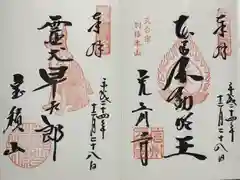 奉拝
天台宗
別格本山
不動明王
光前寺
平成二十四年
十二月二十八日
奉拝
霊犬早太郎
宝積山
平成二十四年
十二月二十八日